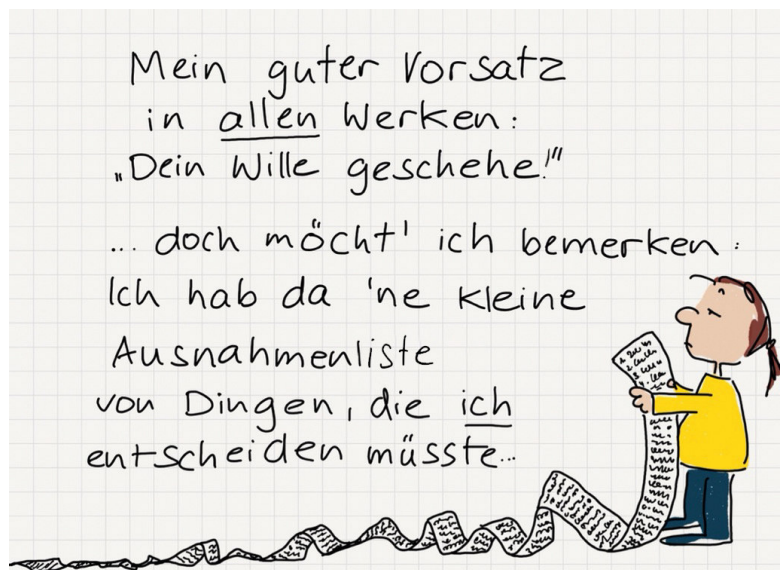 Mein guter Vorsatz
in allen Werken:
„Dein Wille geschehe!"
... doch möcht' ich bemerken:
Ich hab da 'ne kleine
Ausnahmenliste
von Dingen, die ich
entscheiden müsste...